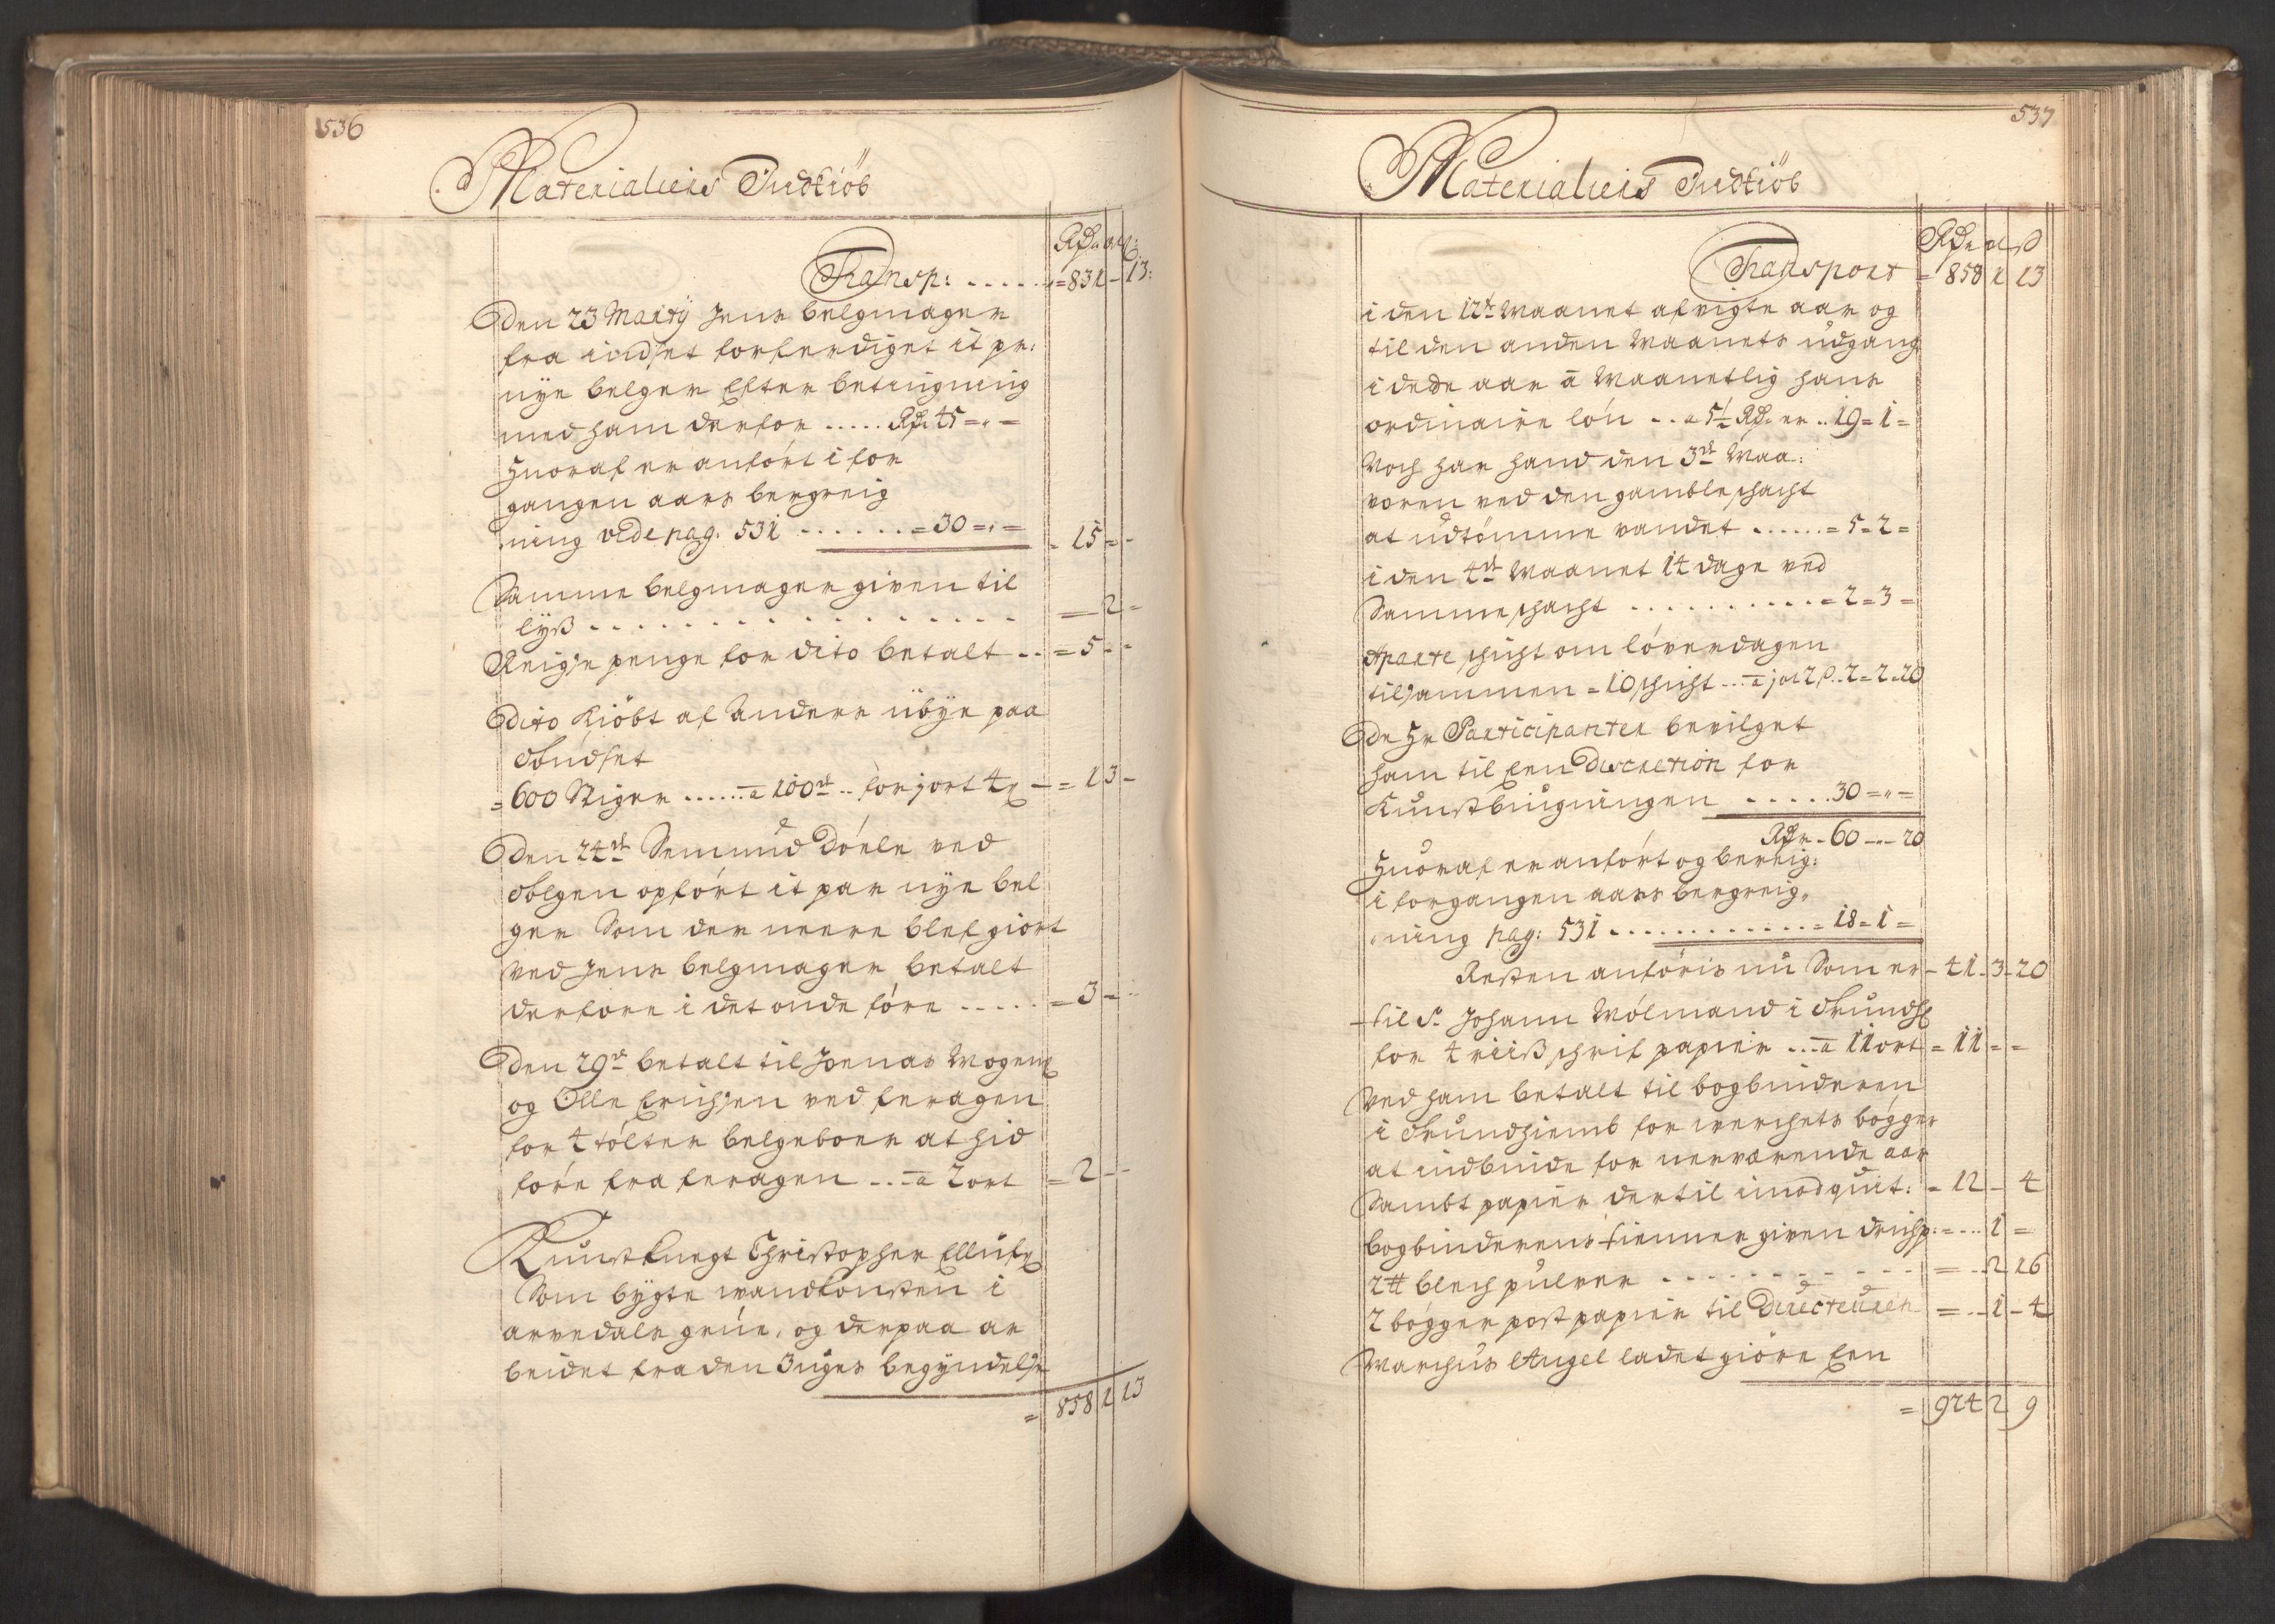 536
Materialiers Indkiöb
Rdr ort ß
Transp: ..... = 831 - 13:
Den 23 Martij Jens belgmager
fra indset forferdiget it pr:
nÿe belger Efter betingning
med ham derfor ..... Rdr 45 = " =
Huoraf er anfört i for
gangen aars bergreig
ning vide pag. 531 ...... = 30 = " = = 15 = -
Samme belgmager given til
lÿß ........ — 2 -
Reigse penge for dito betalt .. = 5 - -
Dito Kiöbt af andere übÿe paa
Indset
= 600 Stiger ...... a 100de .. for jort 4 ß = 1 3 -
Den 24de Semmund Döele ved
Folgen opfört it par nÿe bel
ger Som der neere blef giort
ved Jens belgmager betalt
derfore i det onde före ..... = 3 - -
Den 29de betalt til Jonas Mogens
og Olle Erichsen ved feragen
for 4 tölter belgeboer at hid
före fra feragen ... a 2 ort = 2 - -
Kunstknegt Christopher
Som bÿgte wandkonsten i
arvedals grúe, og derpaa ar
beidet fra den 3 uges begÿndelse
= 858 1 13
537
Materialiers Indkiöb
Rdr ort ß
Transport = 858 1 13
i den 12te Maanet afvigte aar og
til den anden Maanets udgang
i dede aar a Maanetlig hans
ordinaire lön .. a 5½ Rdr er .. 19 = 1 =
Noch har hand den 3de Maa:
voren ved den gamble schacht
at udtömme vandet ...... = 5 = 2 =
i den 4de Maanet 14 dage ved
Samme schacht .......... = 2 = 3 =
Aparte schicht om löverdagen
tilsammen = 10 schicht ... a jort 2 ß .. 2 = 2 = 20
De Hr Participanter bevilget
ham til Een Discretion for
Kunstbÿgningen ..... 30 = " =
Rdr - 60 — 20
Huoraf er anfört og bereig:
i forgangen aars bergreig,
ning pag: 531 ............. = 18 = 1 =
Resten anföris nu Som er - 41 - 3 - 20
til Sr Johann Wölmand i Trundh
for 4 riiß schrif papier ... a 11 ort = 11 = =
Ved ham betalt til bogbinderen
i Trundhiemb for werchets bögger
at indbinde for nerværende aar
Sambt papier dertil imod quit: = 12 - 4
bogbinderens tienner given drichp: = ... 1 =
2 ℔ blech pulver ........... = .. 2 16
2 bögger post papier til Directeuren = .. 1 - 4
Marchus Angel ladet giöre Een
= 924 2 9